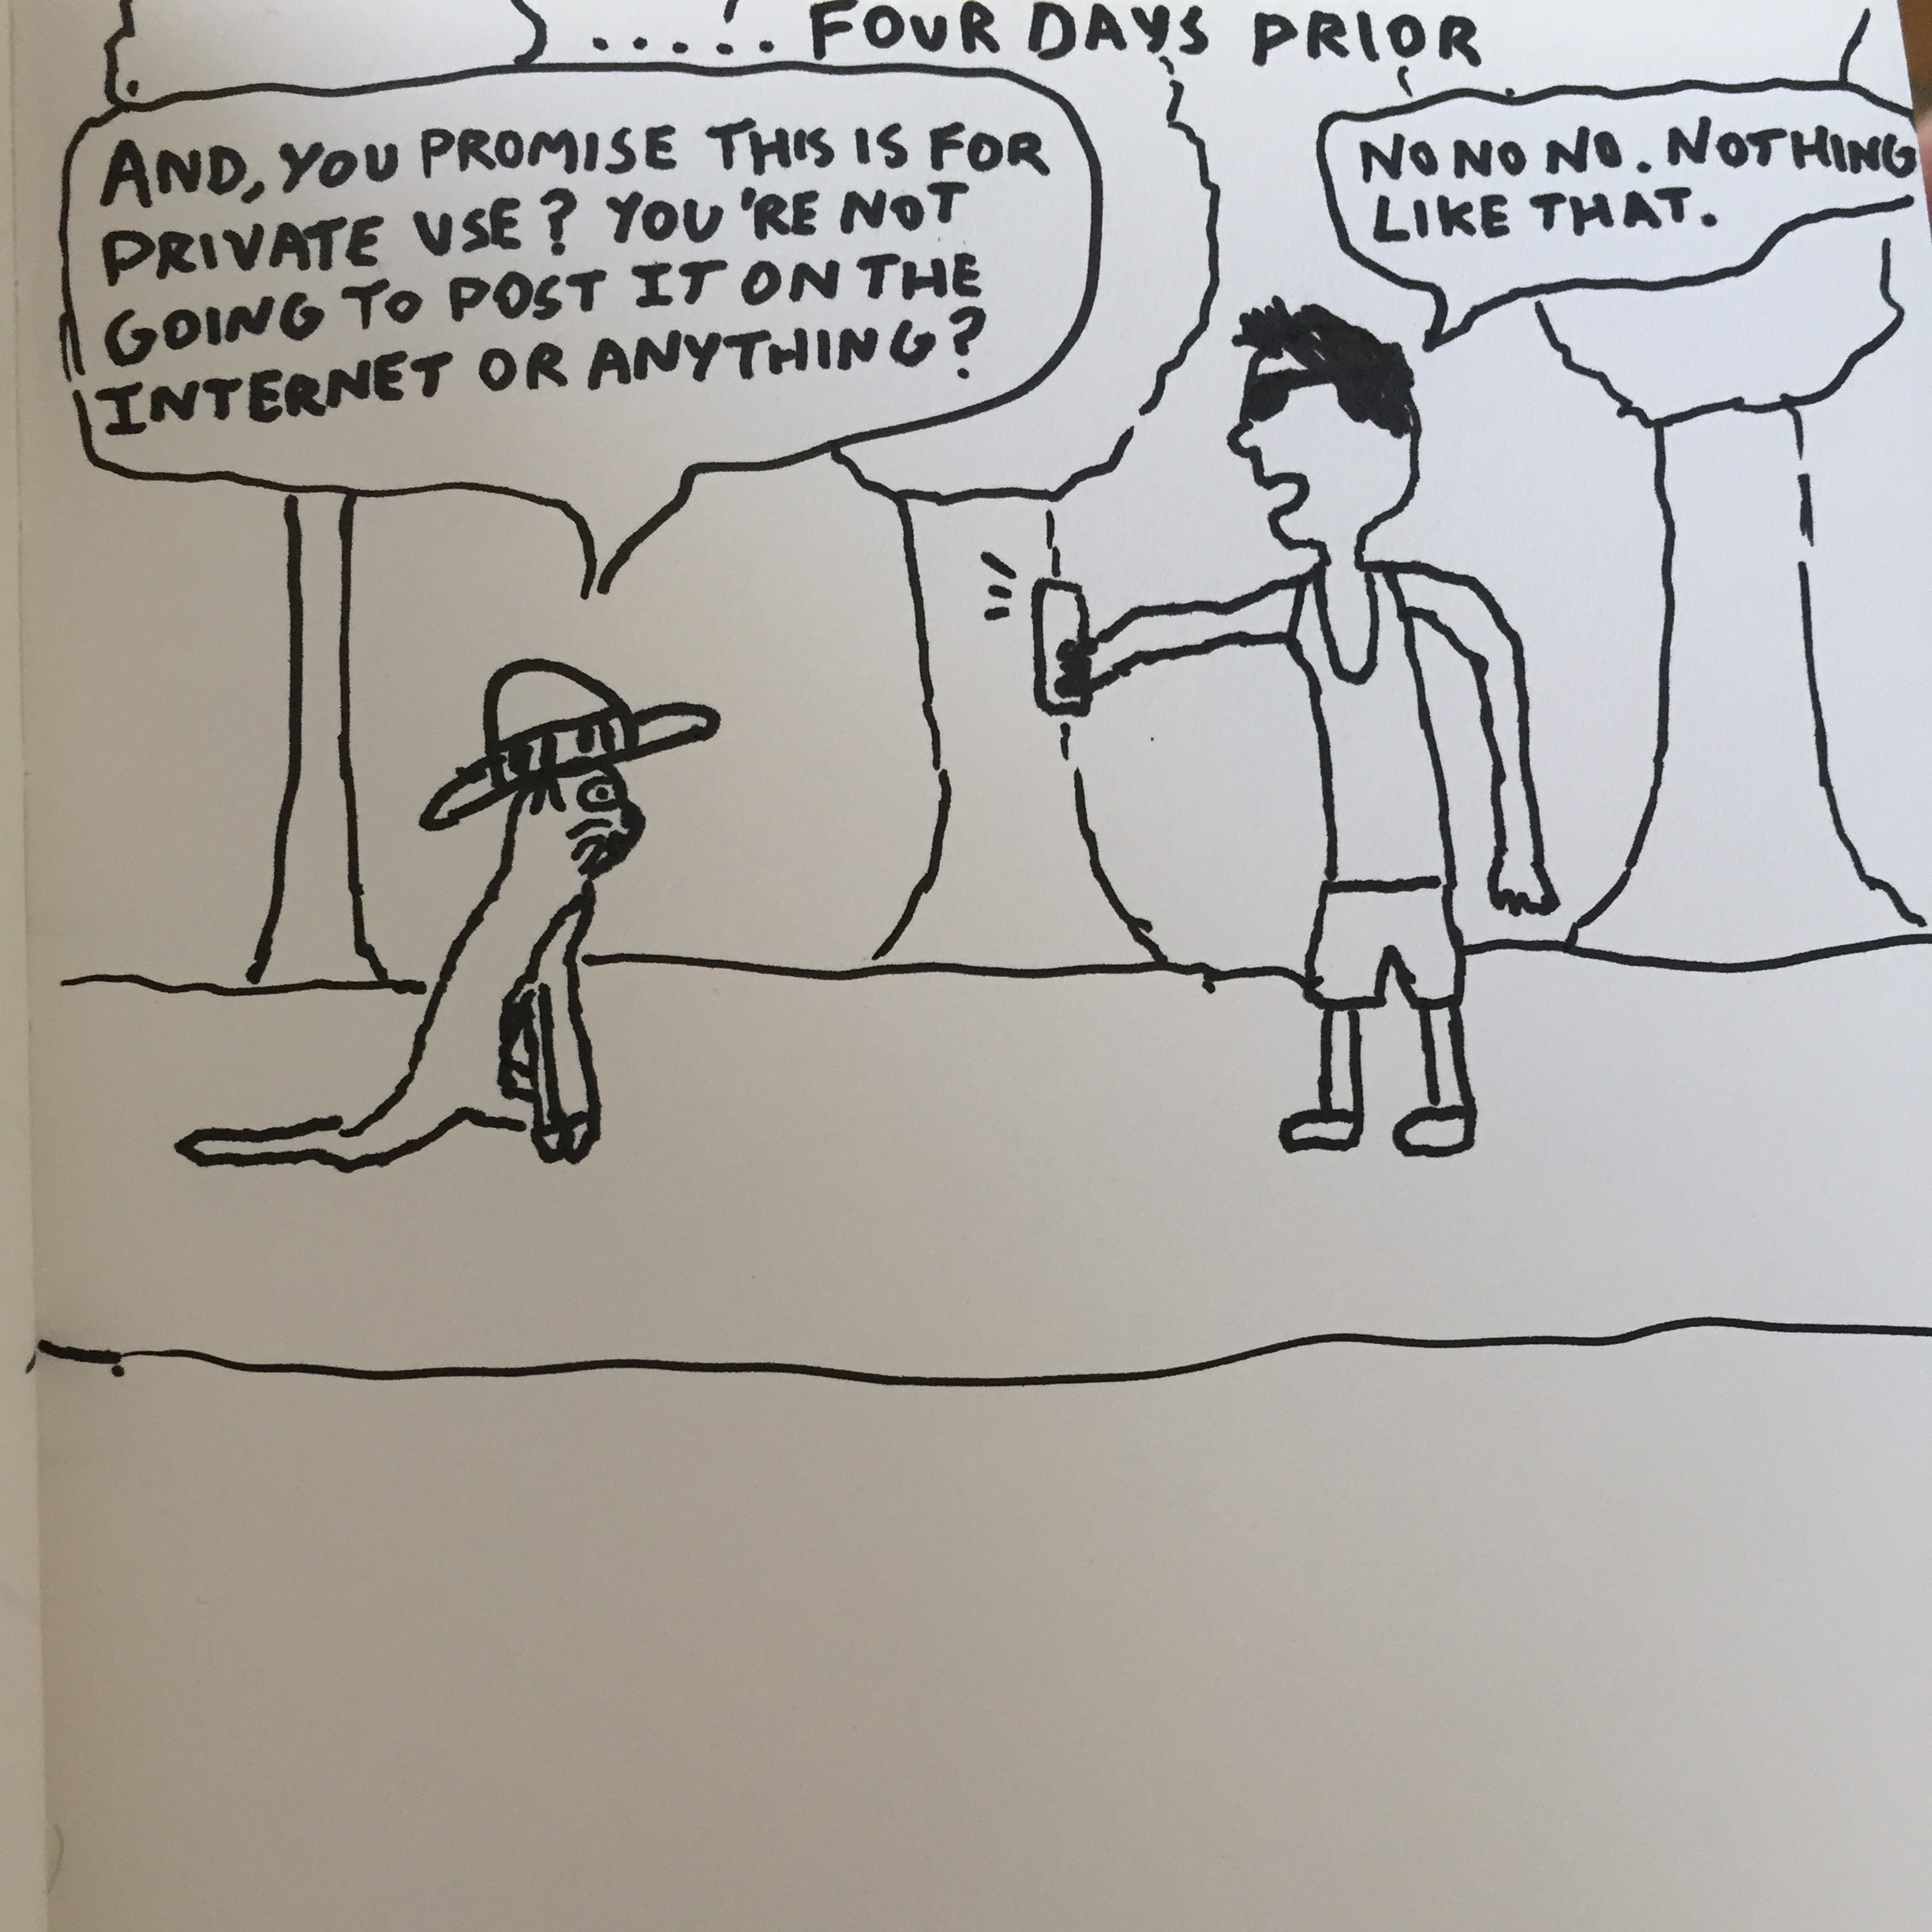 ..... FOUR DAYS PRIOR
AND, YOU PROMISE THIS IS FOR
PRIVATE USE? YOU'RE NOT
GOING TO POST IT ON THE
INTERNET OR ANYTHING?
NO NO NO. NOTHING
LIKE THAT.